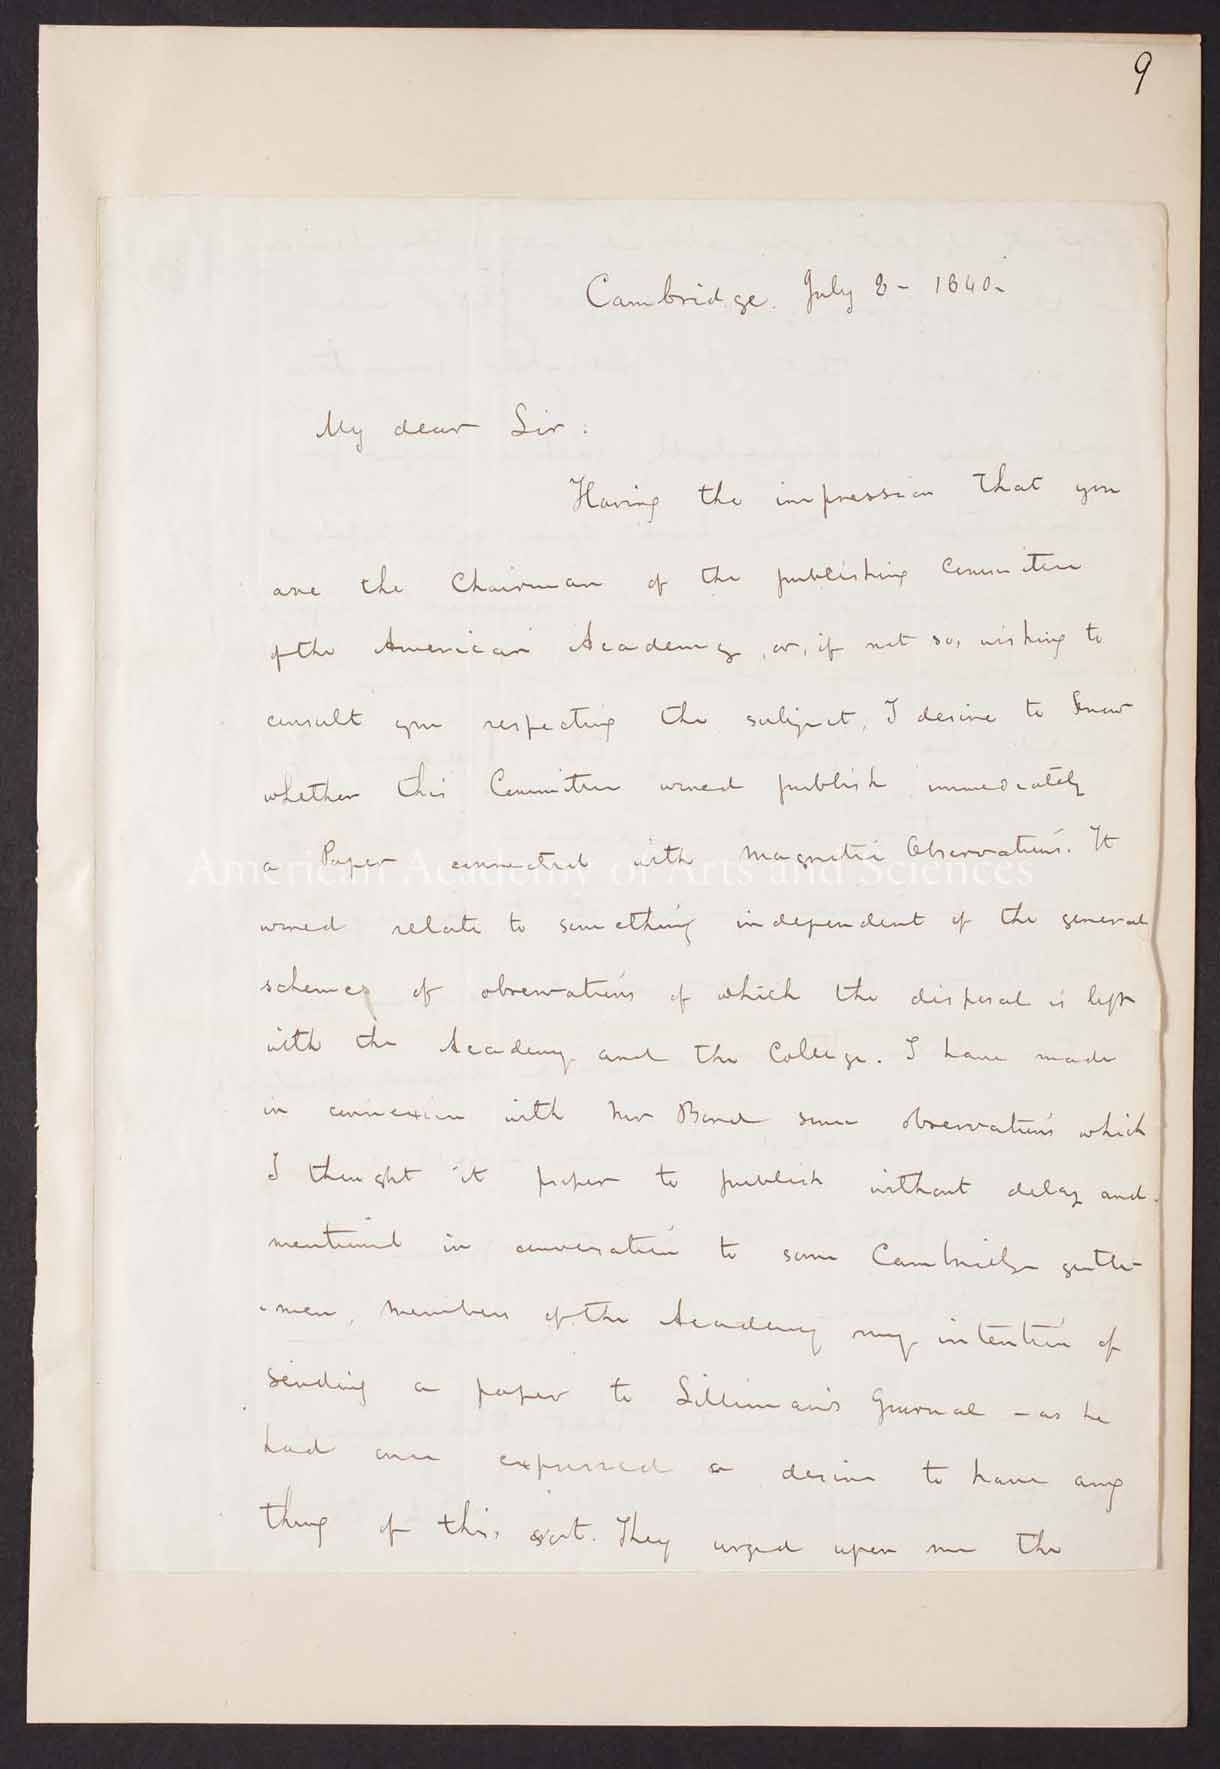 9
Cambridge. July 8 - 1840.
My dear Sir:
Having the impression that you
are the Chairman of the publishing Committee
of the American Academy, or, if not so, wishing to
consult you respecting the subject, I desire to know
whether this Committee would publish immediately
a Paper connected with Magnetic Observations. It
American Academy of Arts and Sciences
would relate to something independent of the general
schemes of observations of which the disposal is left
with the Academy and the College. I have made
in connexion with Mr Bond some observations which
I thought it proper to publish without delay and
mentioned in conversation to some Cambridge gentle-
-men, members of the Academy my intention of
sending a paper to Silliman's Journal - as he
had once expressed a desire to have any
thing of this sort. They urged upon me the